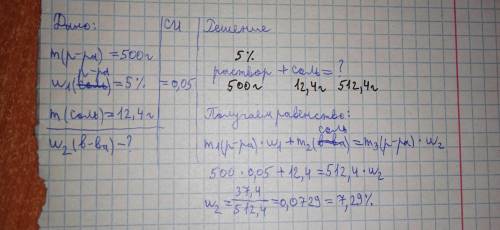 Дано:
СИ
Решение
m(р-ра) = 500г
р-ра
w₁(соль) = 5%
= 0,05
m(соль) = 12,4г
w₂(в-ва) - ?
5%
раствор + соль = ?
500г 12,4г 512,4г
Получаем равенство:
соль
m₁(р-ра) · w₁ + m₂(в-ва) = m₃(р-ра) · w₂
500 · 0,05 + 12,4 = 512,4 · w₂
w₂ = 37,4/512,4 = 0,0729 = 7,29%